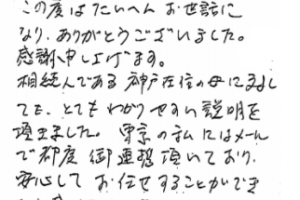 この度はたいへんお世話に
なり、ありがとうございました。
感謝申し上げます。
相続人である神戸在住の母にまして
ても、とてもわかりやすい説明を
頂きました。東京の私にはメール
で都度御連絡頂いており、
安心してお任せすることができ